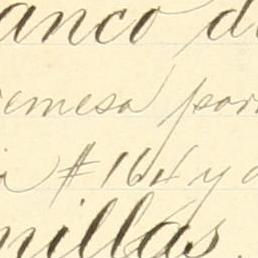 anco de
remesa por
# 164 y
millas